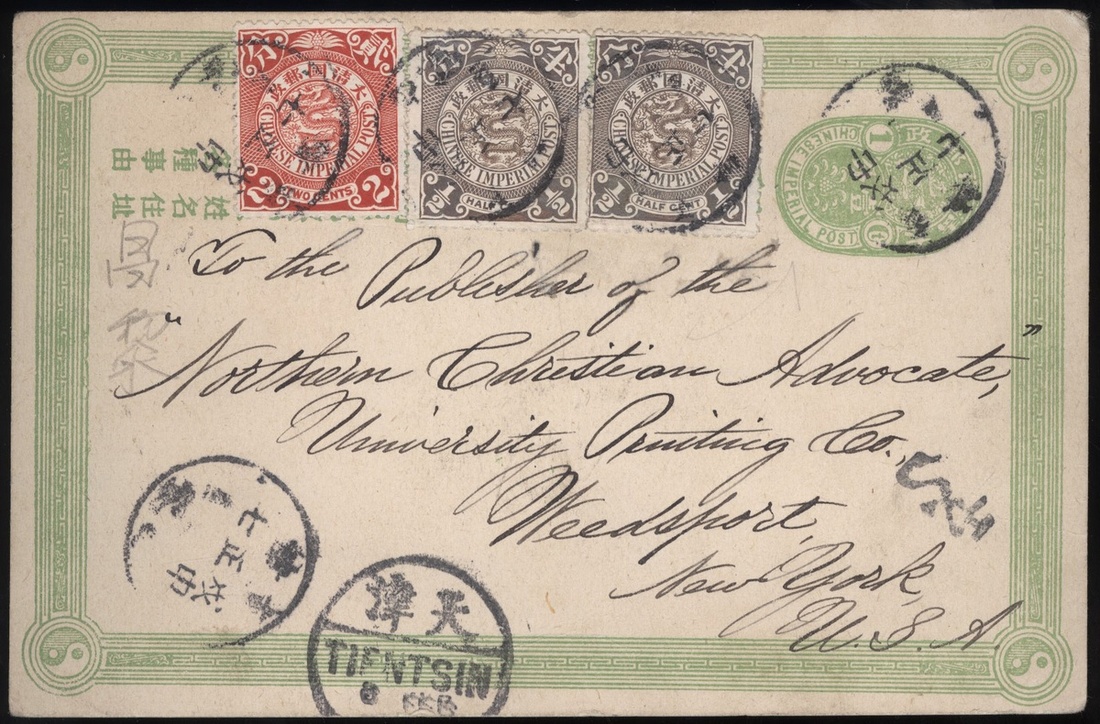 貳 分
大清國郵政
CHINESE IMPERIAL POST
2 TWO CENTS 2
半 分
大清國郵政
CHINESE IMPERIAL POST
1/2 HALF CENT 1/2
半 分
大清國郵政
CHINESE IMPERIAL POST
1/2 HALF CENT 1/2
CHINESE IMPERIAL POST
1 C
姓名住址
種事由
To the
Publisher of the
"Northern Christian Advocate,"
University Printing Co.,
Weedsport,
New York,
U.S.A.
戊申
正
天津
TIENTSIN
8 FEB